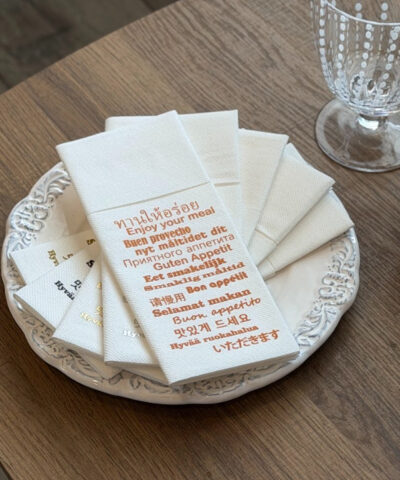 ทานให้อร่อย
Enjoy your meal
Buen provecho
nyt måltidet dit
Приятного аппетита.
Guten Appetit
Eet smakelijk
Smaklig måltid
请慢用 Bon appétit
Selamat makan
Buon appetito
맛있게 드세요
Hyvää ruokahalua
いただきます
Hyvää
Hyvää